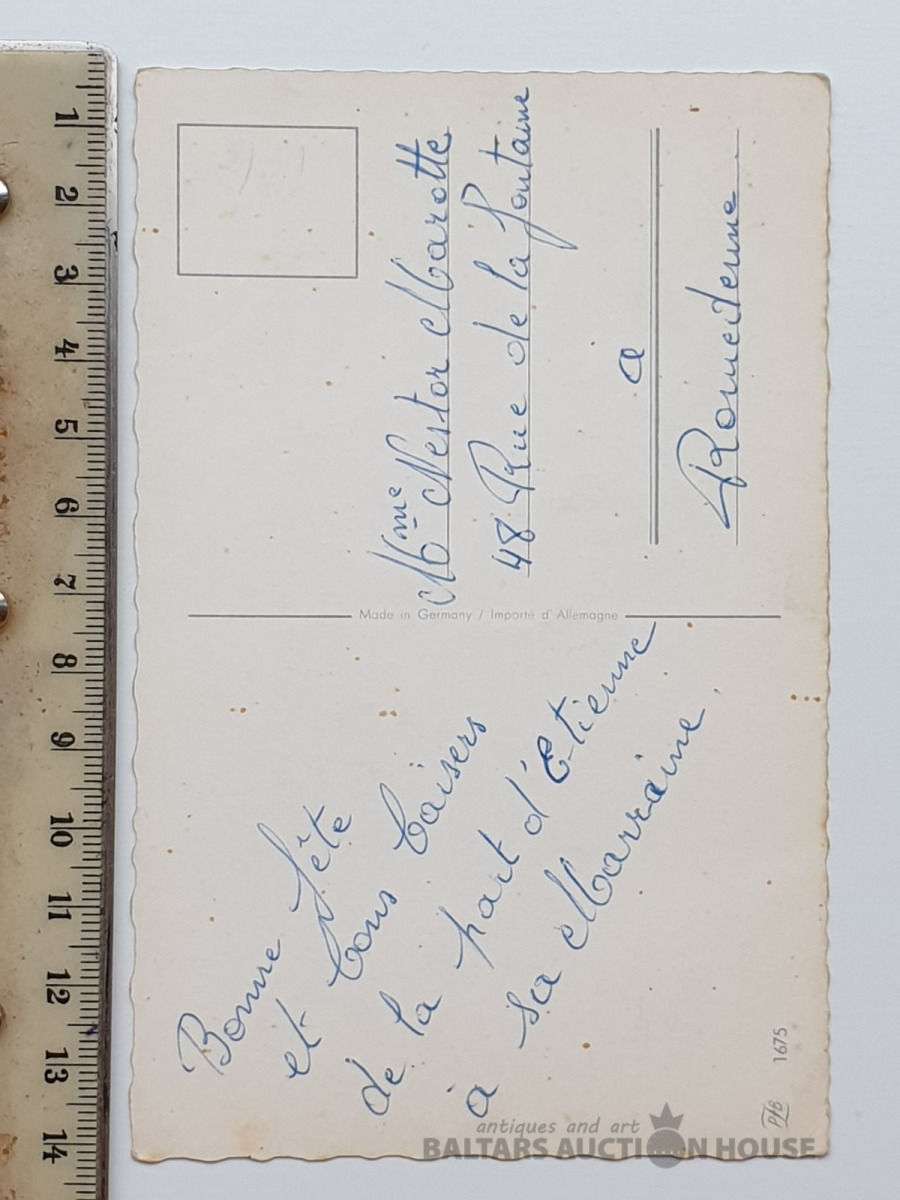 Bonne fête
et bons baisers
de la part d'Etienne
à sa Marraine.
Made in Germany / Importé d'Allemagne
Mme Nestor Marotte
48 Rue de la fontaine
a
Romedenne
PFB
1675
1
2
3
4
5
6
7
8
9
10
11
12
13
14
antiques and art
BALTARS AUCTION HOUSE